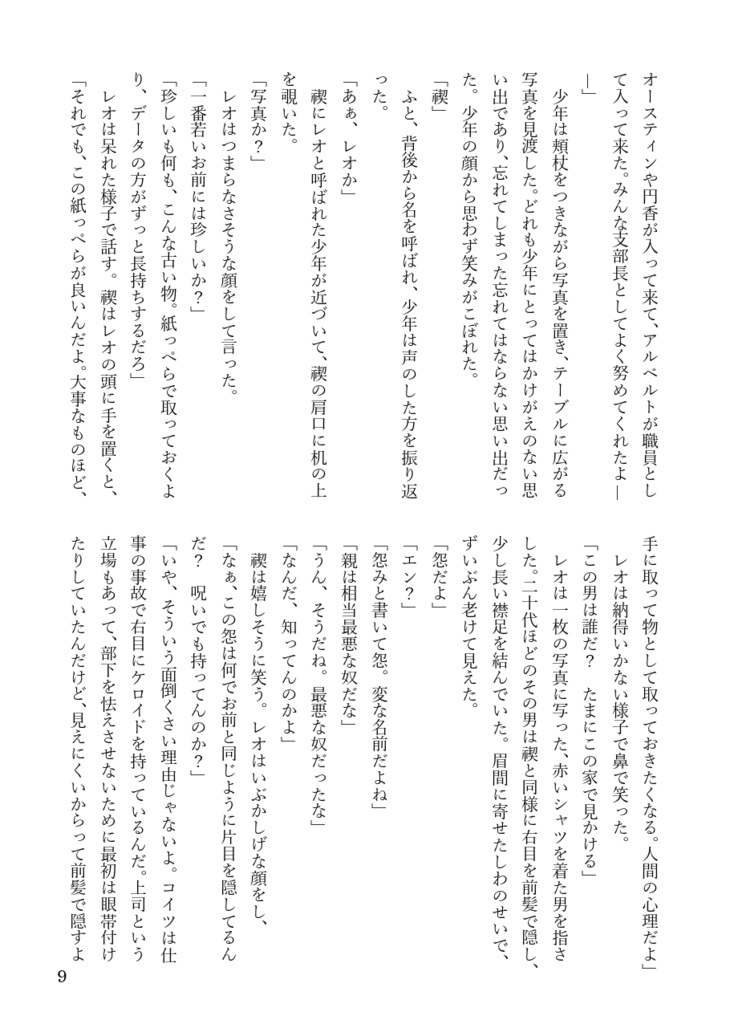 オースティンや円香が入って来て、アルベルトが職員とし
て入って来た。みんな支部長としてよく努めてくれたよ―
―」
　少年は頬杖をつきながら写真を置き、テーブルに広がる
写真を見渡した。どれも少年にとってはかけがえのない思
い出であり、忘れてしまった忘れてはならない思い出だっ
た。少年の顔から思わず笑みがこぼれた。
「禊」
　ふと、背後から名を呼ばれ、少年は声のした方を振り返
った。
「あぁ、レオか」
　禊にレオと呼ばれた少年が近づいて、禊の肩口に机の上
を覗いた。
「写真か？」
　レオはつまらなさそうな顔をして言った。
「一番若いお前には珍しいか？」
「珍しいも何も、こんな古い物。紙っぺらで取っておくよ
り、データの方がずっと長持ちするだろ」
　レオは呆れた様子で話す。禊はレオの頭に手を置くと、
「それでも、この紙っぺらが良いんだよ。大事なものほど、
手に取って物として取っておきたくなる。人間の心理だよ」
　レオは納得いかない様子で鼻で笑った。
「この男は誰だ？　たまにこの家で見かける」
　レオは一枚の写真に写った、赤いシャツを着た男を指さ
した。二十代ほどのその男は禊と同様に右目を前髪で隠し、
少し長い襟足を結んでいた。眉間に寄せたしわのせいで、
ずいぶん老けて見えた。
「怨だよ」
「エン？」
「怨みと書いて怨。変な名前だよね」
「親は相当最悪な奴だな」
「うん、そうだね。最悪な奴だったな」
「なんだ、知ってんのかよ」
　禊は嬉しそうに笑う。レオはいぶかしげな顔をし、
「なぁ、この怨は何でお前と同じように片目を隠してるん
だ？　呪いでも持ってんのか？」
「いや、そういう面倒くさい理由じゃないよ。コイツは仕
事の事故で右目にケロイドを持っているんだ。上司という
立場もあって、部下を怯えさせないために最初は眼帯付け
たりしていたんだけど、見えにくいからって前髪で隠すよ
9